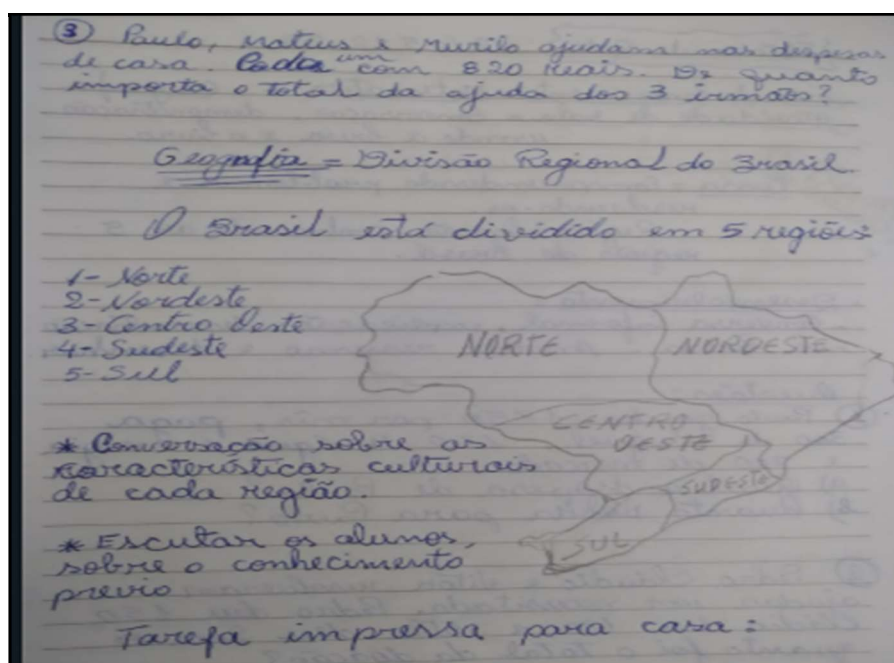 ③ Paulo, Mateus e Murilo ajudam nas despesas
de casa. Cada um com 820 reais. De quanto
importa o total da ajuda dos 3 irmãos?
Geografia = Divisão Regional do Brasil.
O Brasil está dividido em 5 regiões:
1- Norte
2- Nordeste
3- Centro Oeste
4- Sudeste
5- Sul
NORTE
NORDESTE
CENTRO
OESTE
SUDESTE
SUL
* Conversação sobre as
características culturais
de cada região.
* Escutar os alunos,
sobre o conhecimento
previo
Tarefa impressa para casa: